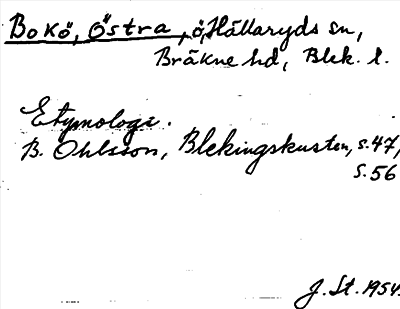 Bokö, Östra, ö, Hällaryds sn,
Bräkne hd, Blek. l.
Etymologi.
B. Ohlsson, Blekingskusten, s. 47,
s. 56
J. St. 1954.